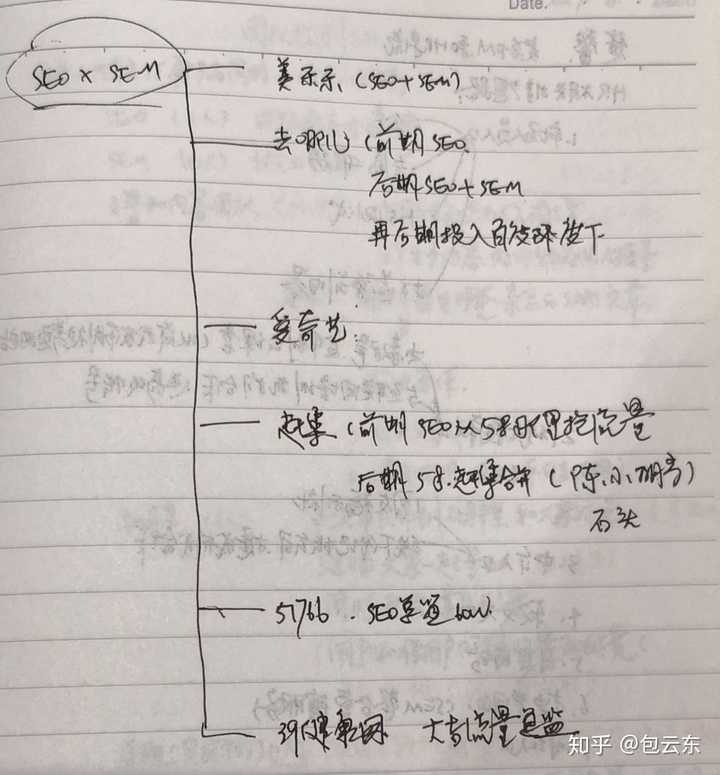 Date.
SEO x SEM
美乐乐 (SEO+SEM)
去哪儿 (前期SEO
后期SEO+SEM
再后期投入百度
爱奇艺
赶集 (前期SEO从58那里挖流量
后期58.赶集合并 (陈小
石头
51766 . SEO总监 60W
39健康网 大 流量总监
知乎 @包云东